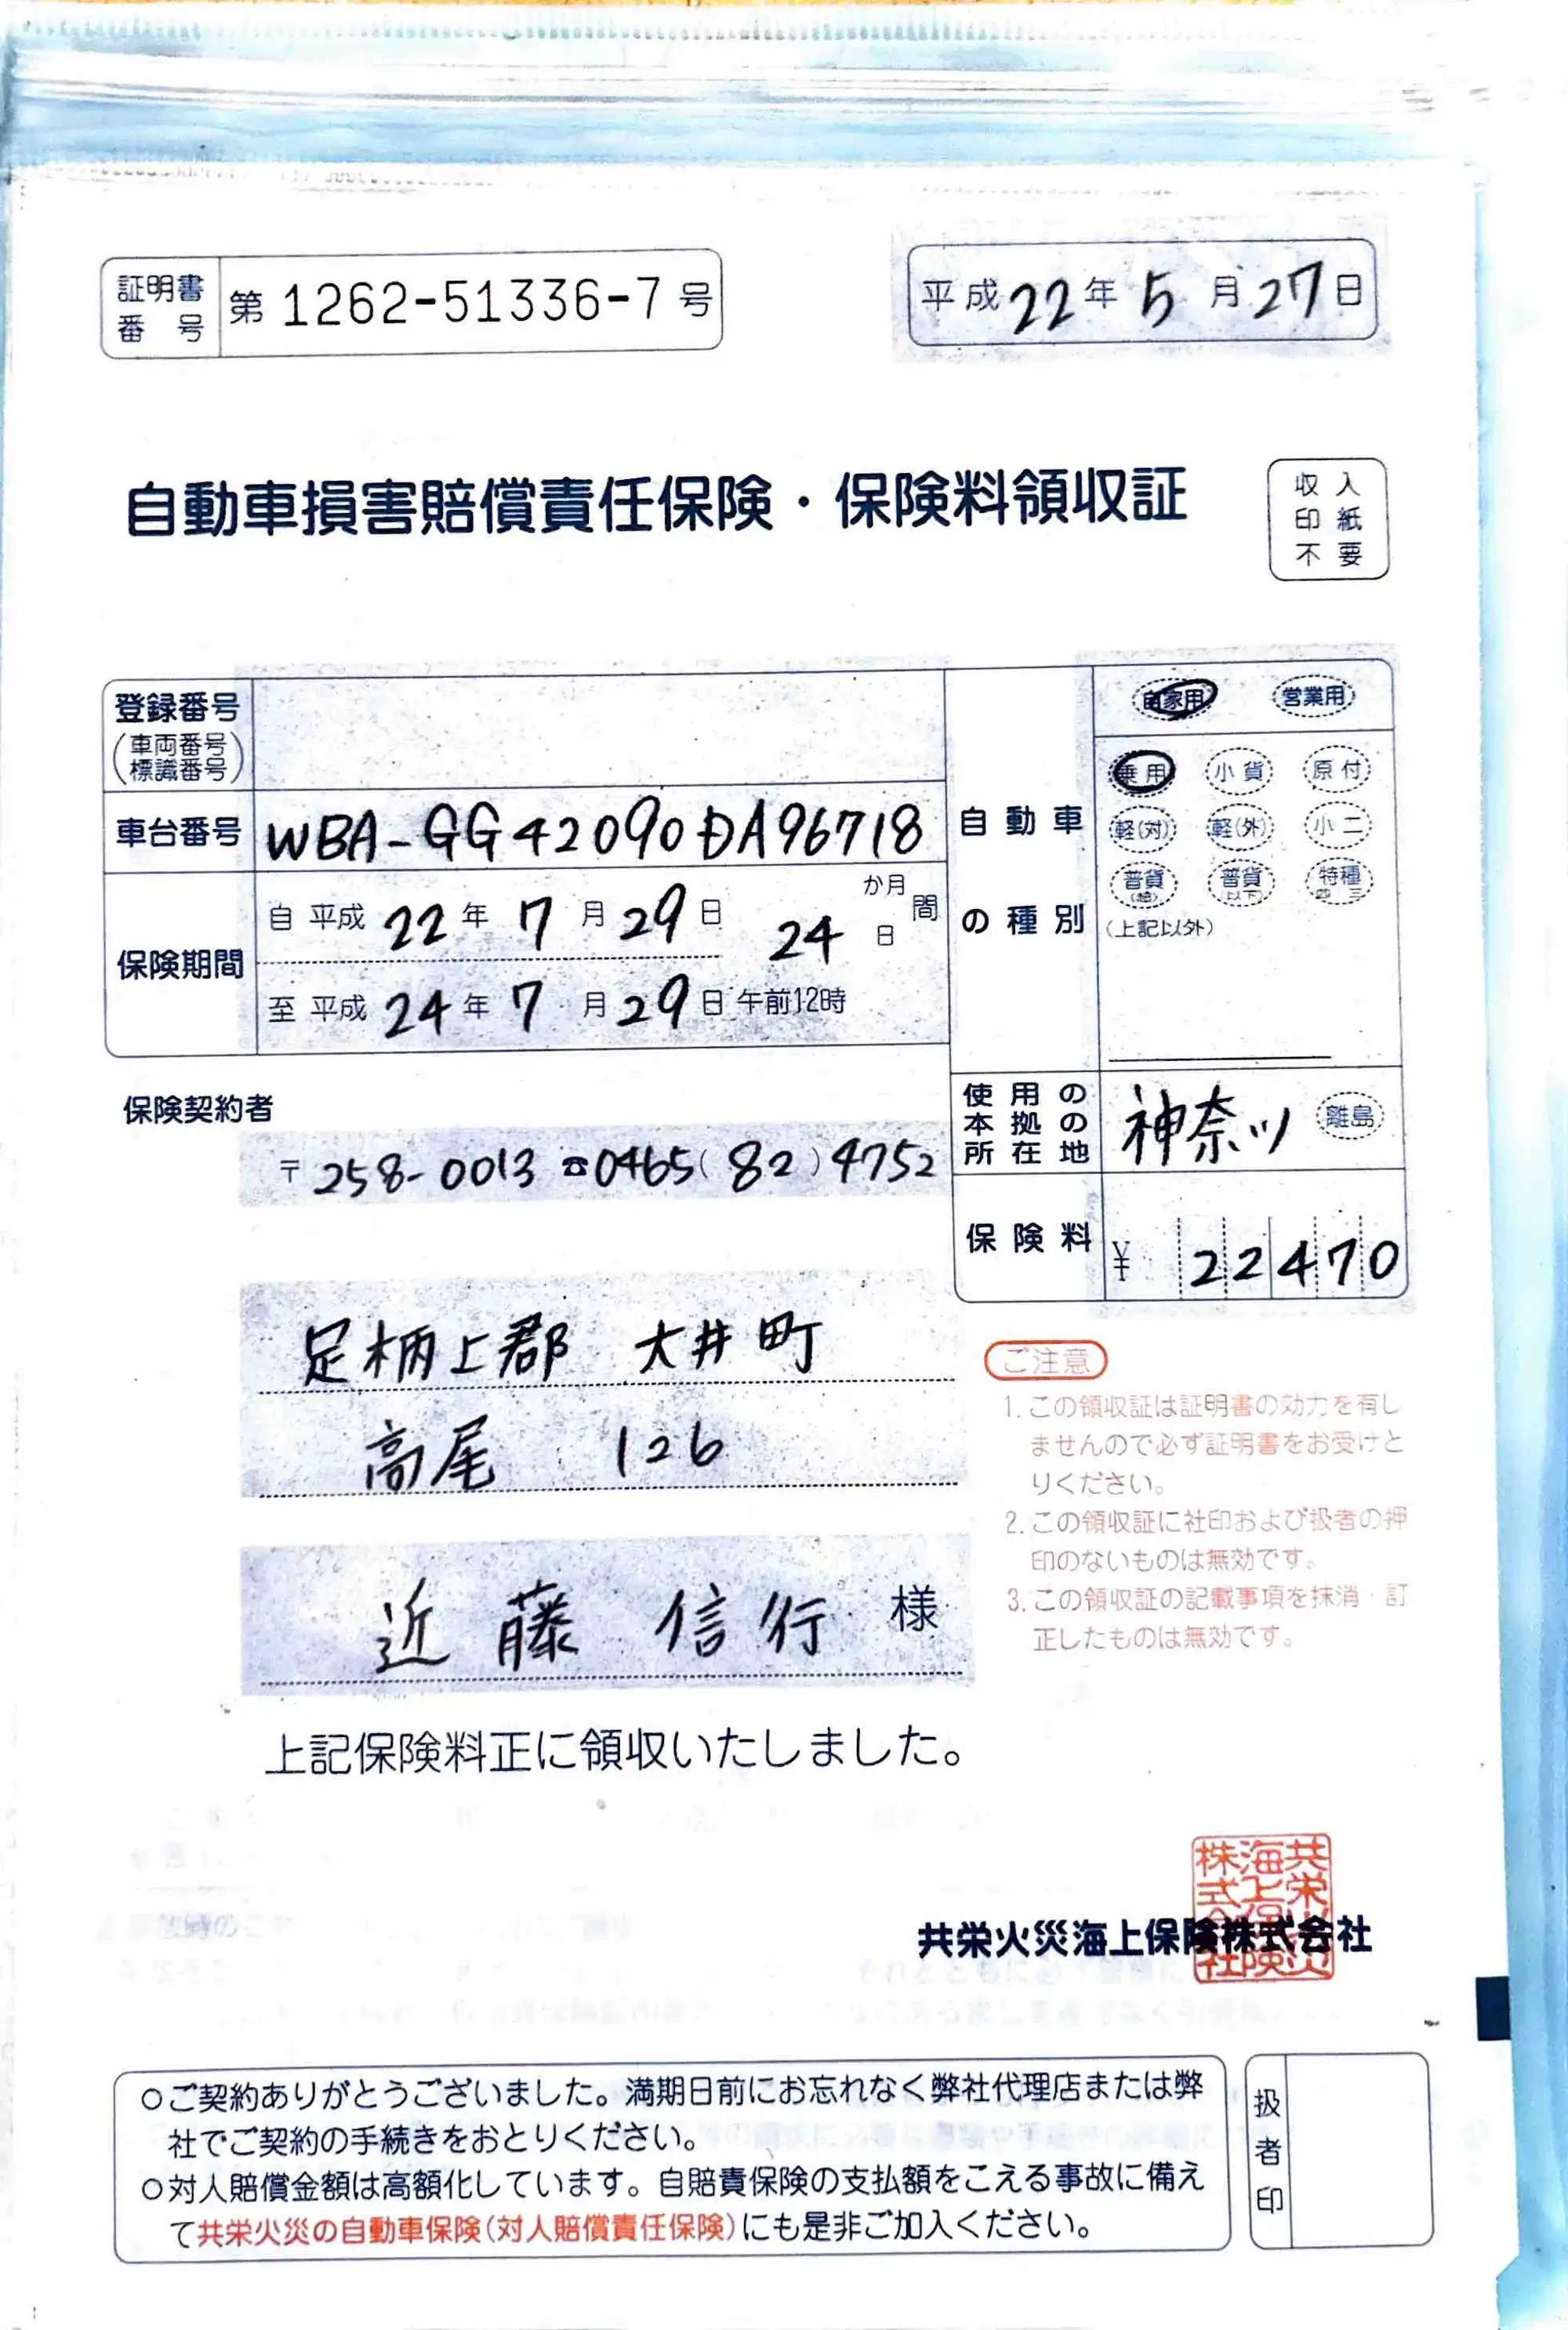 証明書番号 第1262-51336-7号
平成22年5月27日
自動車損害賠償責任保険・保険料領収証
収入
印紙
不要
登録番号
(車両番号
標識番号)
車台番号 WBA-GG42090DA96718
保険期間
自 平成22年7月29日 24か月日間
至 平成24年7月29日午前12時
自動車の種別
自家用 営業用
乗用 小貨 原付
軽(対) 軽(外) 小二
普貨 普貨(以下) 特種
(上記以外)
使用の本拠の所在地 神奈川 離島
保険料 ¥22470
保険契約者
〒258-0013 ☎0465(82)4752
足柄上郡 大井町
高尾 126
近藤 信行 様
上記保険料正に領収いたしました。
ご注意
1.この領収証は証明書の効力を有し
ませんので必ず証明書をお受けと
りください。
2.この領収証に社印および扱者の押
印のないものは無効です。
3.この領収証の記載事項を抹消・訂
正したものは無効です。
共栄火災海上保険株式会社
○ご契約ありがとうございました。満期日前にお忘れなく弊社代理店または弊
社でご契約の手続きをおとりください。
○対人賠償金額は高額化しています。自賠責保険の支払額をこえる事故に備え
て共栄火災の自動車保険(対人賠償責任保険)にも是非ご加入ください。
扱者印